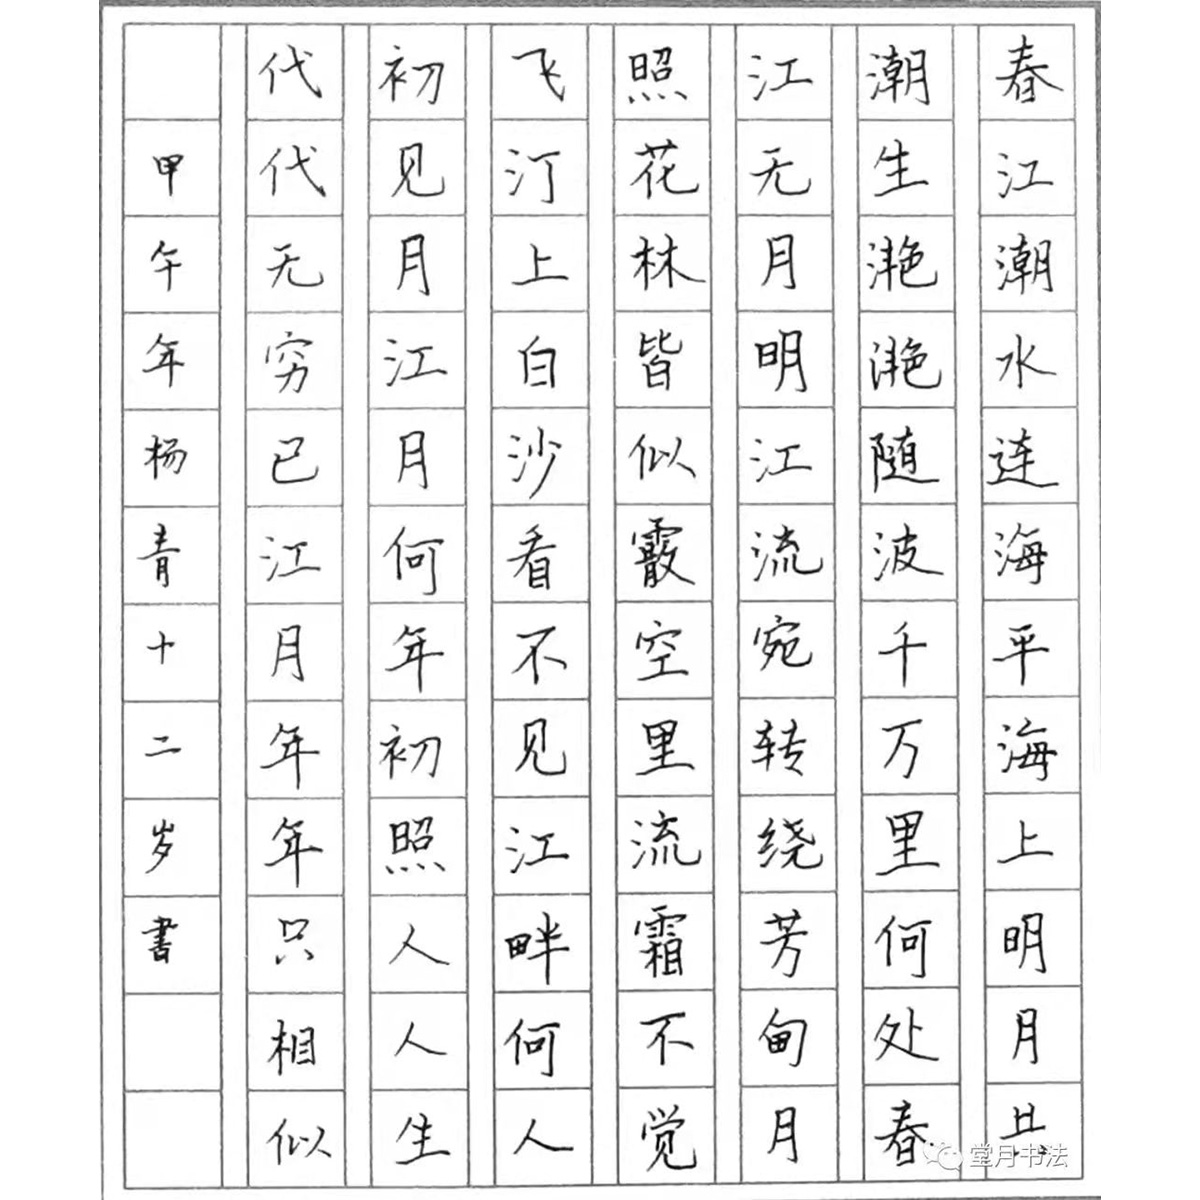 春江潮水连海平海上明月共
潮生滟滟随波千万里何处春
江无月明江流宛转绕芳甸月
照花林皆似霰空里流霜不觉
飞汀上白沙看不见江畔何人
初见月江月何年初照人人生
代代无穷已江月年年只相似
甲午年杨青十二岁書
堂月书法